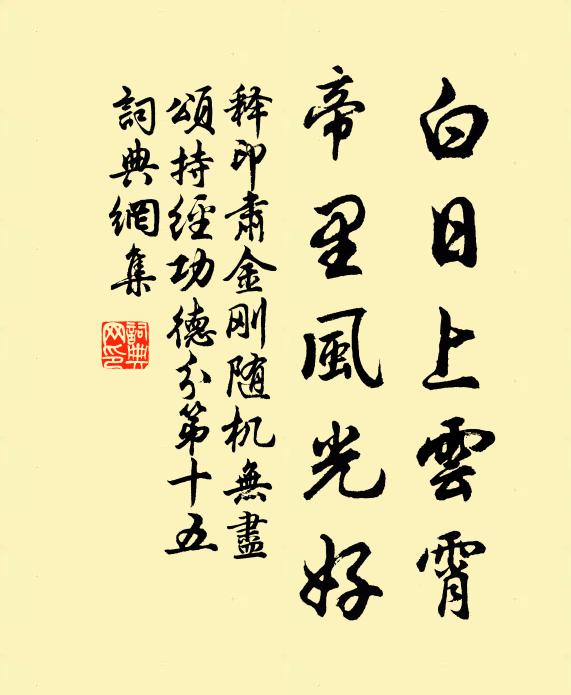 白日上雲霄
帝里風光好
释印肃金剛随机無盡
頌持經功德分第十五
詞典網集
詞典网印